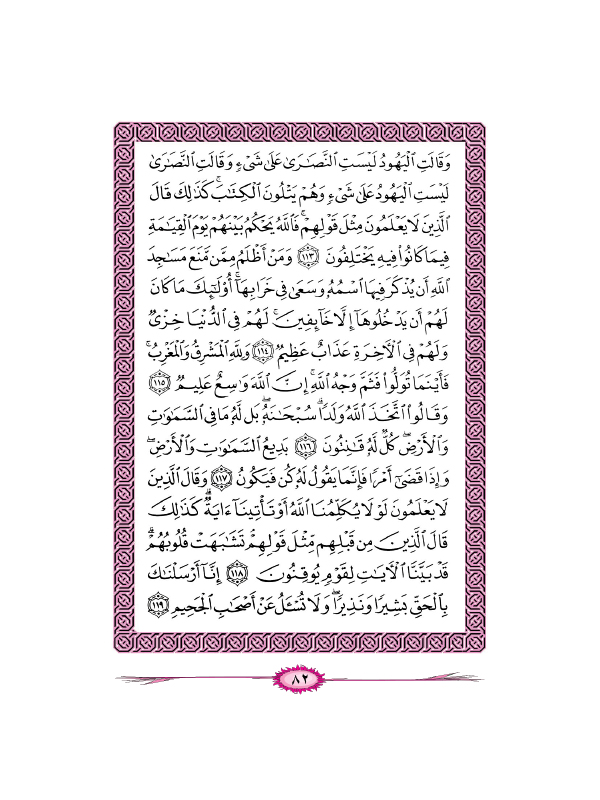 وَقَالَتِ ٱلْيَهُودُ لَيْسَتِ ٱلنَّصَـٰرَىٰ عَلَىٰ شَىْءٍ وَقَالَتِ ٱلنَّصَـٰرَىٰ
لَيْسَتِ ٱلْيَهُودُ عَلَىٰ شَىْءٍ وَهُمْ يَتْلُونَ ٱلْكِتَـٰبَ ۗ كَذَٰلِكَ قَالَ
ٱلَّذِينَ لَا يَعْلَمُونَ مِثْلَ قَوْلِهِمْ ۚ فَٱللَّهُ يَحْكُمُ بَيْنَهُمْ يَوْمَ ٱلْقِيَـٰمَةِ
فِيمَا كَانُوا۟ فِيهِ يَخْتَلِفُونَ ﴿١١٣﴾ وَمَنْ أَظْلَمُ مِمَّن مَّنَعَ مَسَـٰجِدَ
ٱللَّهِ أَن يُذْكَرَ فِيهَا ٱسْمُهُۥ وَسَعَىٰ فِى خَرَابِهَآ ۚ أُو۟لَـٰٓئِكَ مَا كَانَ
لَهُمْ أَن يَدْخُلُوهَآ إِلَّا خَآئِفِينَ ۚ لَهُمْ فِى ٱلدُّنْيَا خِزْىٌ
وَلَهُمْ فِى ٱلْـَٔاخِرَةِ عَذَابٌ عَظِيمٌ ﴿١١٤﴾ وَلِلَّهِ ٱلْمَشْرِقُ وَٱلْمَغْرِبُ ۚ
فَأَيْنَمَا تُوَلُّوا۟ فَثَمَّ وَجْهُ ٱللَّهِ ۚ إِنَّ ٱللَّهَ وَٰسِعٌ عَلِيمٌ ﴿١١٥﴾
وَقَالُوا۟ ٱتَّخَذَ ٱللَّهُ وَلَدًا ۗ سُبْحَـٰنَهُۥ ۖ بَل لَّهُۥ مَا فِى ٱلسَّمَـٰوَٰتِ
وَٱلْأَرْضِ ۖ كُلٌّ لَّهُۥ قَـٰنِتُونَ ﴿١١٦﴾ بَدِيعُ ٱلسَّمَـٰوَٰتِ وَٱلْأَرْضِ ۖ
وَإِذَا قَضَىٰٓ أَمْرًا فَإِنَّمَا يَقُولُ لَهُۥ كُن فَيَكُونُ ﴿١١٧﴾ وَقَالَ ٱلَّذِينَ
لَا يَعْلَمُونَ لَوْلَا يُكَلِّمُنَا ٱللَّهُ أَوْ تَأْتِينَآ ءَايَةٌ ۗ كَذَٰلِكَ
قَالَ ٱلَّذِينَ مِن قَبْلِهِم مِّثْلَ قَوْلِهِمْ ۘ تَشَـٰبَهَتْ قُلُوبُهُمْ ۗ
قَدْ بَيَّنَّا ٱلْـَٔايَـٰتِ لِقَوْمٍ يُوقِنُونَ ﴿١١٨﴾ إِنَّآ أَرْسَلْنَـٰكَ
بِٱلْحَقِّ بَشِيرًا وَنَذِيرًا ۖ وَلَا تُسْـَٔلُ عَنْ أَصْحَـٰبِ ٱلْجَحِيمِ ﴿١١٩﴾
٨٢